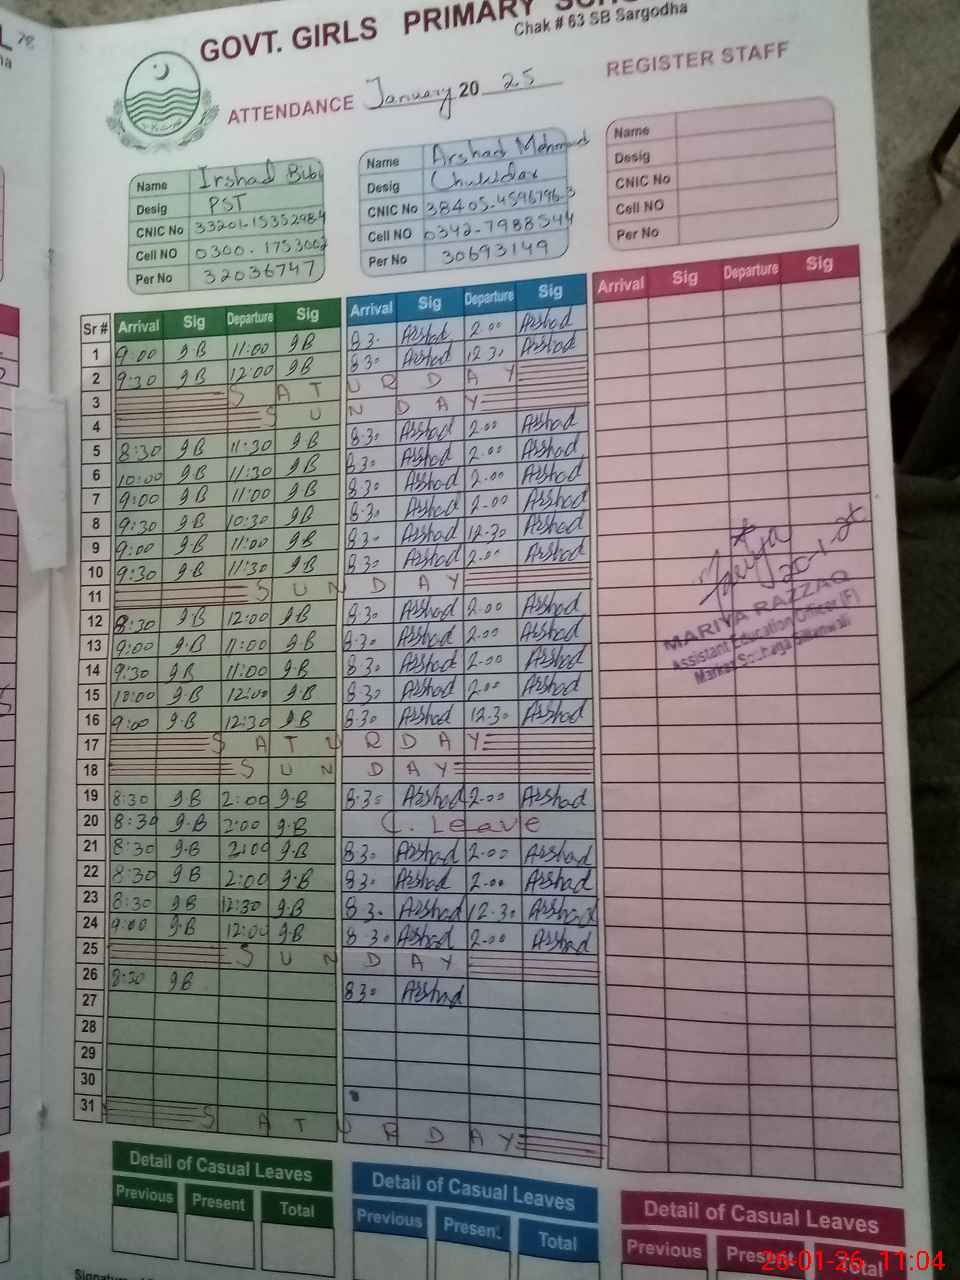 GOVT. GIRLS PRIMARY
Chak # 63 SB Sargodha
ATTENDANCE January 20 25 REGISTER STAFF
Name Irshad Bibi
Desig PST
CNIC No
Cell NO
Per No 32036747
Name Arshad Mehmood
Desig
CNIC No
Cell NO
Per No 30693149
Name
Desig
CNIC No
Cell NO
Per No
Sr # Arrival Sig Departure Sig Arrival Sig Departure Sig Arrival Sig Departure Sig
1 9:00 9.B 11:00 9B 8.30 Arshad 2.00 Arshad
2 9:30 9B 12:00 9B 8.30 Arshad 12.30 Arshad
3 S A T U R D A Y
4 S U N D A Y
5 8:30 9B 11:30 9B 8.30 Arshad 2.00 Arshad
6 10:00 9B 11:30 9B 8.30 Arshad 2.00 Arshad
7 9:00 9B 11:00 9B 8.30 Arshad 2.00 Arshad
8 9:30 9B 10:30 9B 8.30 Arshad 2.00 Arshad
9 9:00 9B 11:00 9B 8.30 Arshad 12.30 Arshad
10 9:30 9B 11:30 9B 8.30 Arshad 2.00 Arshad
11 S U N D A Y
12 8:30 9B 12:00 9B 8.30 Arshad 2.00 Arshad
13 9:00 9.B 11:00 9B 8.30 Arshad 2.00 Arshad
14 9:30 9B 11:00 9B 8.30 Arshad 2.00 Arshad
15 10:00 9.B 12:00 9B 8.30 Arshad 2.00 Arshad
16 9:00 9.B 12:30 9B 8.30 Arshad 12.30 Arshad
17 S A T U R D A Y
18 S U N D A Y
19 8:30 9B 2:00 9.B 8.30 Arshad 2.00 Arshad
20 8:30 9.B 2:00 9.B C. Leave
21 8:30 9.B 2:00 9.B 8.30 Arshad 2.00 Arshad
22 8:30 9B 2:00 9.B 8.30 Arshad 2.00 Arshad
23 8:30 9B 12:30 9.B 8.30 Arshad 12.30 Arshad
24 9:00 9.B 12:00 9B 8.30 Arshad 2.00 Arshad
25 S U N D A Y
26 8:30 9B 8.30 Arshad
27
28
29
30
31 S A T U R D A Y
MARIYA RAZZAQ
Assistant Education Officer (F)
Detail of Casual Leaves
Previous Present Total
Detail of Casual Leaves
Previous Present Total
Detail of Casual Leaves
Previous Present Total
26-01-26, 11:04